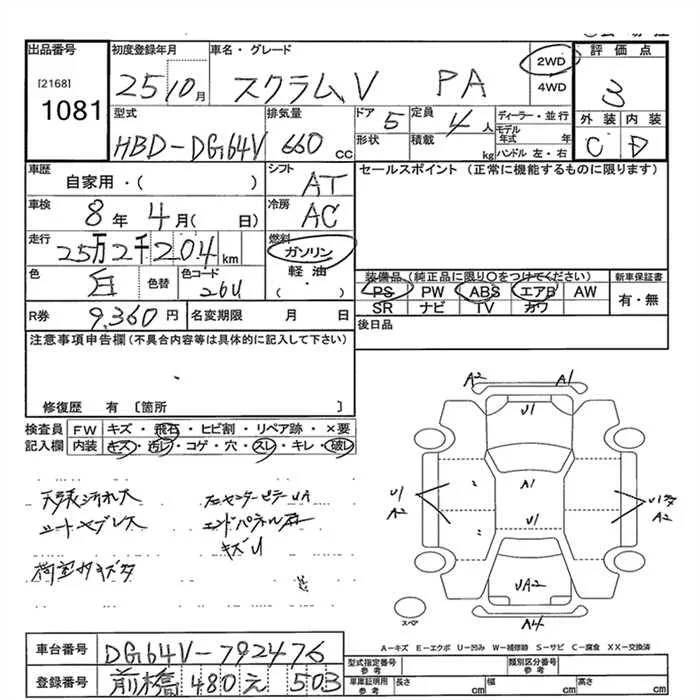 出品番号 初度登録年月 車名・グレード 2WD 4WD 評価点
[2168]
1081 25 10月 スクラムV PA 3
型式 排気量 ドア 5 定員 4人 ディーラー・並行 外装 内装
HBD-DG64V 660cc 形状 積載 kg モデル年式 年 ハンドル 左・右 C D
車歴 シフト セールスポイント (正常に機能するものに限ります)
自家用・( ) AT
車検 冷房
8年 4月( 日) AC
走行 燃料
25万2千204km ガソリン
色 白 色替 色コード 26U 軽油
( ・ )
装備品(純正品に限り○をつけてください) 新車保証書
PS PW ABS エアB AW 有・無
SR ナビ TV カワ
R券 9,360円 名変期限 月 日 後日品
注意事項申告欄(不具合内容等は具体的に記入して下さい)
修復歴 有〔箇所 〕
検査員 FW キズ・飛石・ヒビ割・リペア跡・×要
記入欄 内装 キズ・汚レ・コゲ・穴・スレ・キレ・破レ
A2 A1
U1
天張汚れ大
シートヤブレス
U1 A2 A1 A2
U1
エンドパネル
キズU
UA2
スペア
A4
A-キズ E-エクボ U-凹み W-補修跡 S-サビ C-腐食 XX-交換済
車台番号 DG64V-792476
型式指定番号 参考 類別区分番号 参考
登録番号 前橋 480 え 503
車庫証明用 参考 長さ cm 幅 cm 高さ cm